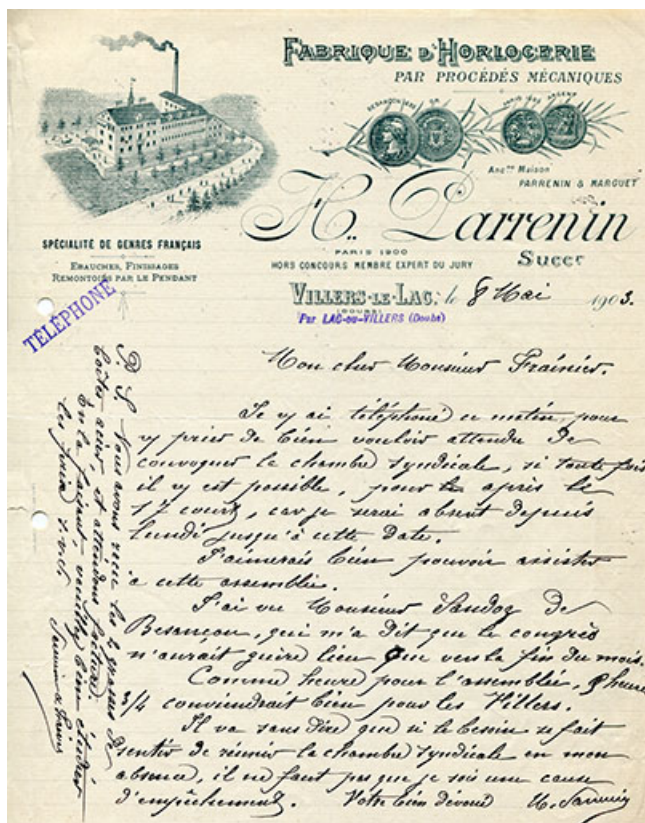 FABRIQUE D'HORLOGERIE
PAR PROCÉDÉS MÉCANIQUES
BESANÇON OR
PARIS ARGENT
Ancne Maison
PARRENIN & MARGUET
H. Parrenin
Succr
SPÉCIALITÉ DE GENRES FRANÇAIS
EBAUCHES, FINISSAGES
REMONTOIRS PAR LE PENDANT
PARIS 1900
HORS CONCOURS MEMBRE EXPERT DU JURY
VILLERS-LE-LAC, le 8 Mai 1903.
(DOUBS)
Par LAC-ou-VILLERS (Doubs)
TÉLÉPHONE
Mon cher Monsieur Frainier.
Je vs ai téléphoné ce matin, pour
vs prier de bien vouloir attendre de
convoquer la chambre syndicale, si toute fois
il vs est possible, pour le après le
17 court, car je serai absent depuis
lundi jusqu'à cette date.
J'aimerais bien pouvoir assister
à cette assemblée.
J'ai vu Monsieur Sandoz de
Besançon, qui m'a dit que le congrès
n'aurait guère lieu que vers la fin du mois.
Comme heure pour l'assemblée, 8 heure
3/4 conviendrait bien pour les Villers.
Il va sans dire que si le besoin se fait
sentir de réunir la chambre syndicale en mon
absence, il ne faut pas que je sois une cause
d'empêchement. Votre bien dévoué H. Parrenin
P. S. Nous avons reçu les 2 grosses de
boîtes acier, et attendons facture.
En la faisant, veuillez bien étudier
les prix